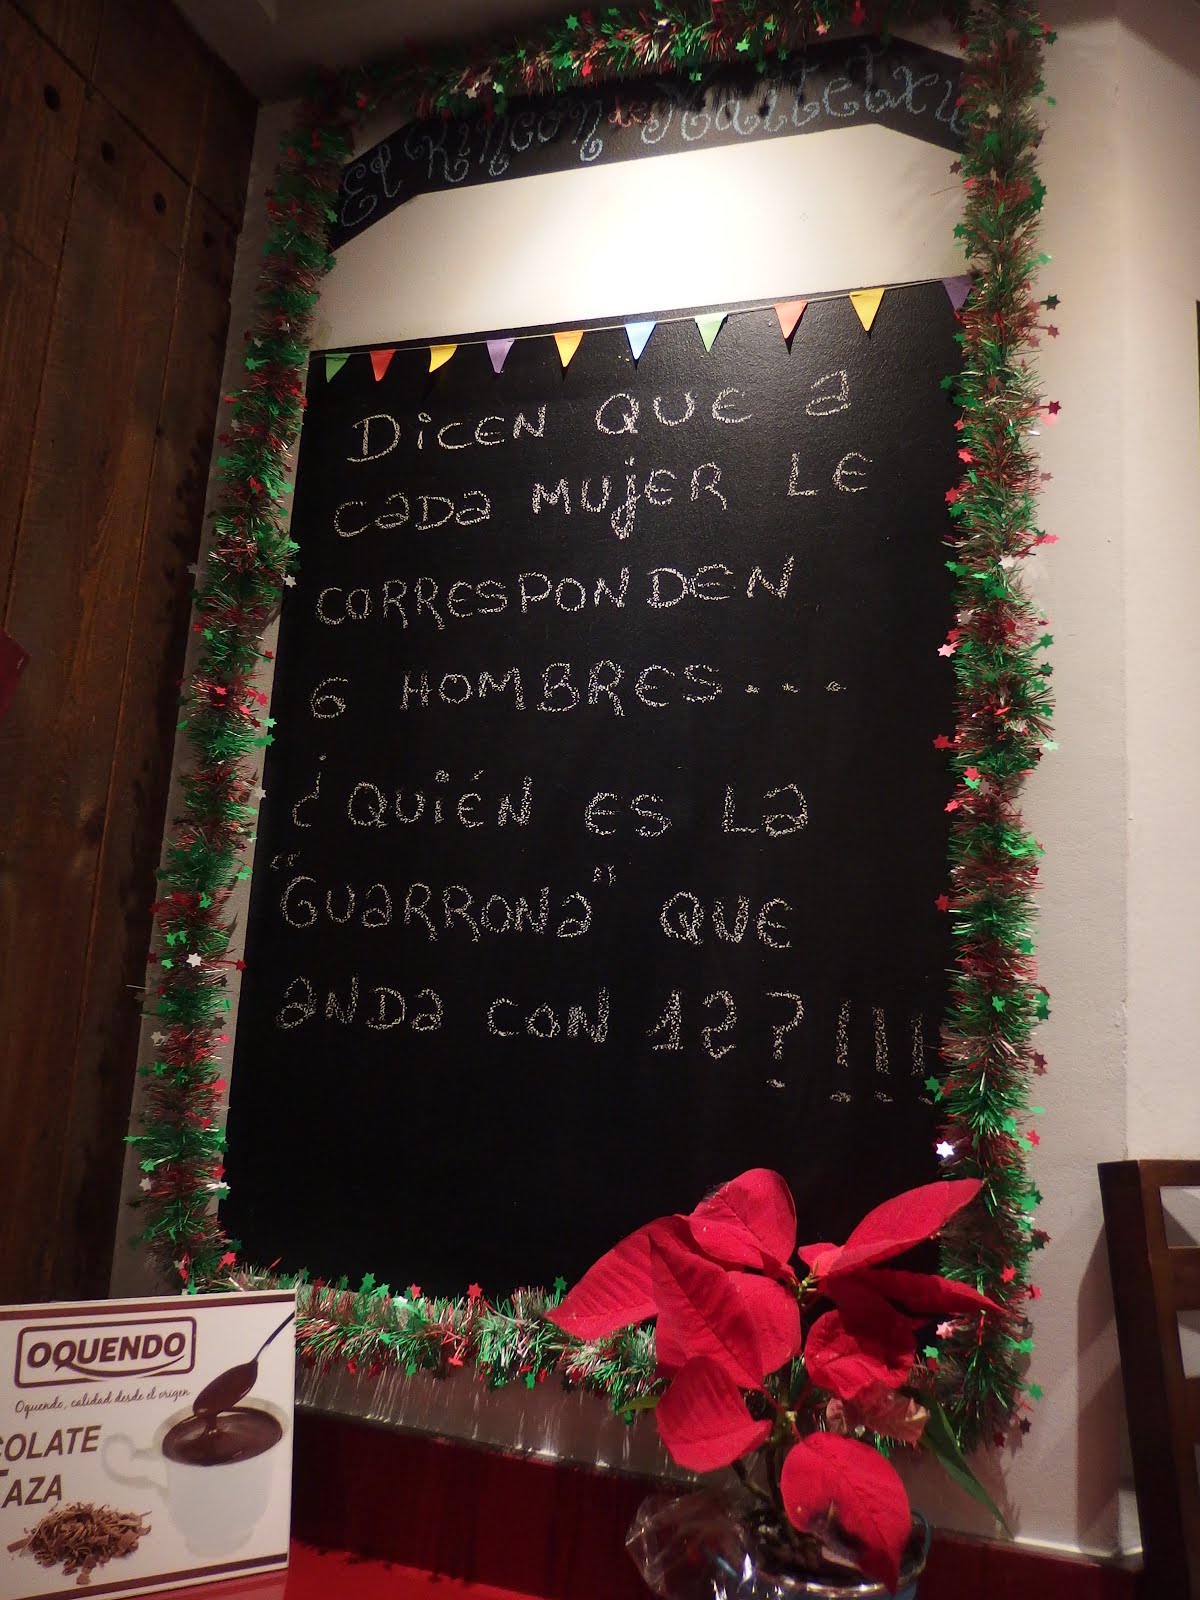 El Rincón de Maitetxu
Dicen que a
cada mujer le
corresponden
6 hombres...
¿Quién es la
"guarrona" que
anda con 12?!!!
OQUENDO
Oquendo, calidad desde el origen
COLATE
TAZA